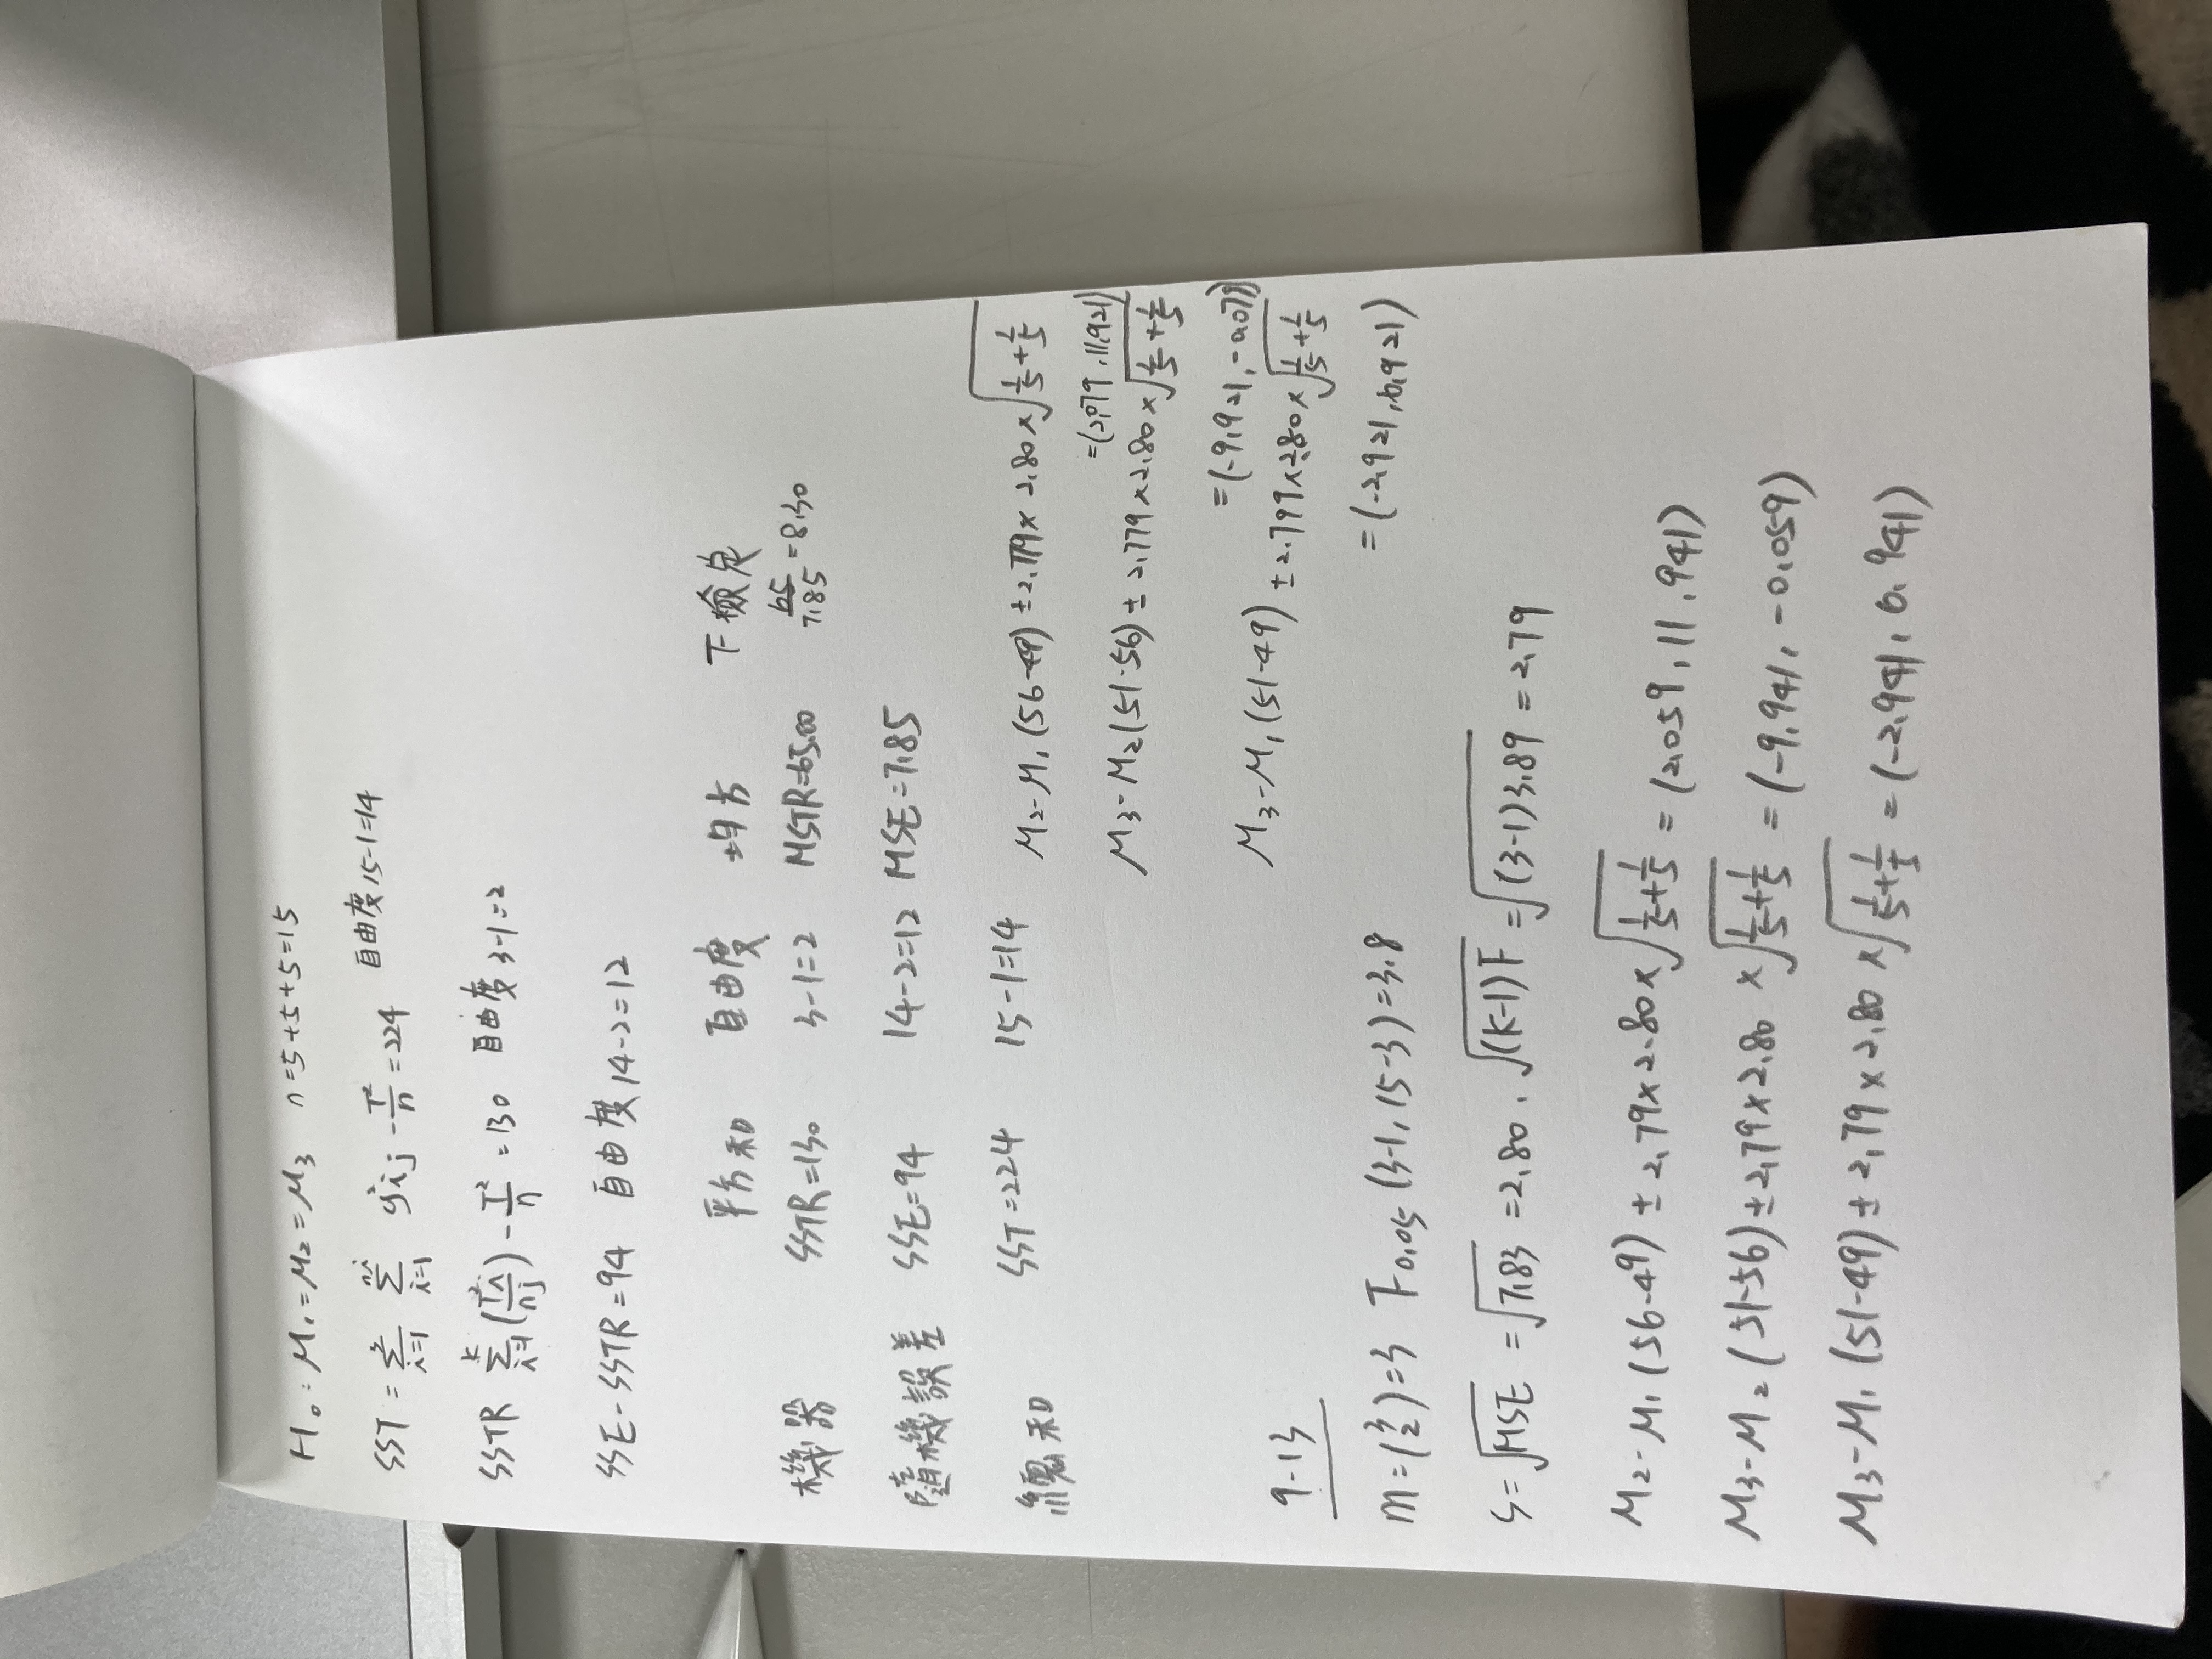 H₀: μ₁=μ₂=μ₃ n=5+5+5=15
SST = Σ_{i=1}^{3} Σ_{i=1}^{ni} y²ij - T²/n = 224 自由度 15-1=14
SSTR Σ_{i=1}^{k} (T²i/nj) - T²/n = 130 自由度 3-1=2
SSE-SSTR=94 自由度 14-2=12
平方和 自由度 均方 F檢定
機器 SSTR=130 3-1=2 MSTR=65.00 65/7.85=8.30
隨機誤差 SSE=94 14-2=12 MSE=7.85
總和 SST=224 15-1=14
μ₂-μ₁ (56-49) ±2.779× 2.80×√(1/5+1/5)
=(2.079, 11.921)
μ₃-μ₂ (51-56) ± 2.779×2.80×√(1/5+1/5)
=(-9.921, -0.079)
μ₃-μ₁ (51-49) ±2.799×2.80×√(1/5+1/5)
=(-2.921, 6.921)
9-13
m=(3 2)=3 F0.05 (3-1, 15-3)=3.8
S=√MSE =√7.83 =2.80. √(k-1)F =√(3-1)3.89 = 2.79
μ₂-μ₁ (56-49) ± 2.79×2.80×√(1/5+1/5) = (2.059, 11.941)
μ₃-μ₂ (51-56) ±2.79×2.80 ×√(1/5+1/5) = (-9.941, -0.059)
μ₃-μ₁ (51-49) ± 2.79×2.80 ×√(1/5+1/5) = (-2.941, 6.941)